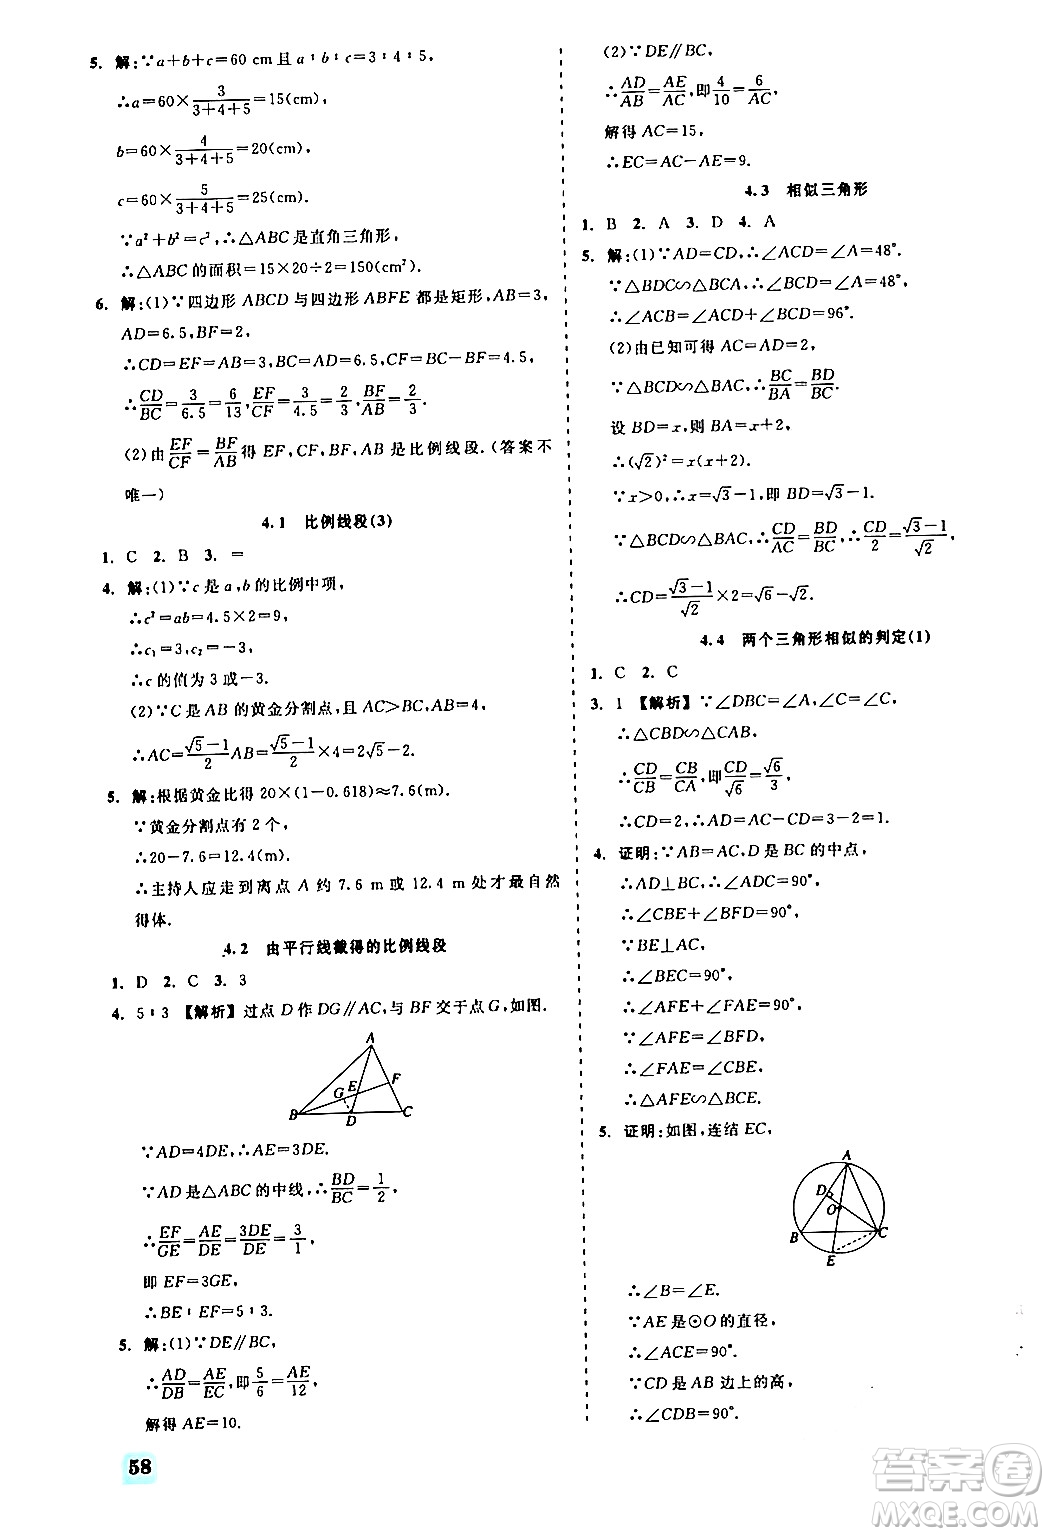 5. 解:∵a+b+c=60 cm 且 a∶b∶c=3∶4∶5,
∴a=60×3/(3+4+5)=15(cm),
b=60×4/(3+4+5)=20(cm),
c=60×5/(3+4+5)=25(cm).
∵a²+b²=c²,∴△ABC是直角三角形,
∴△ABC的面积=15×20÷2=150(cm²).
6. 解:(1)∵四边形 ABCD 与四边形 ABFE 都是矩形,AB=3,
AD=6.5,BF=2,
∴CD=EF=AB=3,BC=AD=6.5,CF=BC-BF=4.5,
∴CD/BC=3/6.5=6/13,EF/CF=3/4.5=2/3,BF/AB=2/3.
(2)由EF/CF=BF/AB得 EF,CF,BF,AB 是比例线段.(答案不
唯一)
4.1 比例线段(3)
1. C 2. B 3. =
4. 解:(1)∵c 是 a,b 的比例中项,
∴c²=ab=4.5×2=9,
∴c₁=3,c₂=-3,
∴c的值为 3 或-3.
(2)∵C 是 AB 的黄金分割点,且 AC>BC,AB=4,
∴AC=(√5-1)/2 AB=(√5-1)/2×4=2√5-2.
5. 解:根据黄金比得 20×(1-0.618)≈7.6(m).
∵黄金分割点有 2 个,
∴20-7.6=12.4(m).
∴主持人应走到离点 A 约 7.6 m 或 12.4 m 处才最自然
得体.
4.2 由平行线截得的比例线段
1. D 2. C 3. 3
4. 5∶3 【解析】过点 D 作 DG∥AC,与 BF 交于点 G,如图.
A
F
G E
B D C
∵AD=4DE,∴AE=3DE.
∵AD 是△ABC 的中线,∴BD/BC=1/2,
∴EF/GE=AE/DE=3DE/DE=3/1,
即 EF=3GE,
∴BE∶EF=5∶3.
5. 解:(1)∵DE∥BC,
∴AD/DB=AE/EC,即5/6=AE/12,
解得 AE=10.
58
(2)∵DE∥BC,
∴AD/AB=AE/AC,即4/10=6/AC,
解得 AC=15,
∴EC=AC-AE=9.
4.3 相似三角形
1. B 2. A 3. D 4. A
5. 解:(1)∵AD=CD,∴∠ACD=∠A=48°.
∵△BDC∽△BCA,∴∠BCD=∠A=48°,
∴∠ACB=∠ACD+∠BCD=96°.
(2)由已知可得 AC=AD=2,
∵△BCD∽△BAC,∴BC/BA=BD/BC.
设 BD=x,则 BA=x+2,
∴(√2)²=x(x+2).
∵x>0,∴x=√3-1,即 BD=√3-1.
∵△BCD∽△BAC,∴CD/AC=BD/BC,∴CD/2=(√3-1)/√2,
∴CD=(√3-1)/√2×2=√6-√2.
4.4 两个三角形相似的判定(1)
1. C 2. C
3. 1 【解析】∵∠DBC=∠A,∠C=∠C,
∴△CBD∽△CAB.
∴CD/CB=CB/CA,即CD/√6=√6/3,
∴CD=2,∴AD=AC-CD=3-2=1.
4. 证明:∵AB=AC,D 是 BC 的中点,
∴AD⊥BC,∴∠ADC=90°,
∴∠CBE+∠BFD=90°.
∵BE⊥AC,
∴∠BEC=90°,
∴∠AFE+∠FAE=90°.
∵∠AFE=∠BFD,
∴∠FAE=∠CBE,
∴△AFE∽△BCE.
5. 证明:如图,连结 EC,
A
D
O
B C
E
∴∠B=∠E.
∵AE是⊙O的直径,
∴∠ACE=90°.
∵CD 是 AB 边上的高,
∴∠CDB=90°.
答案卷
MXQE.COM